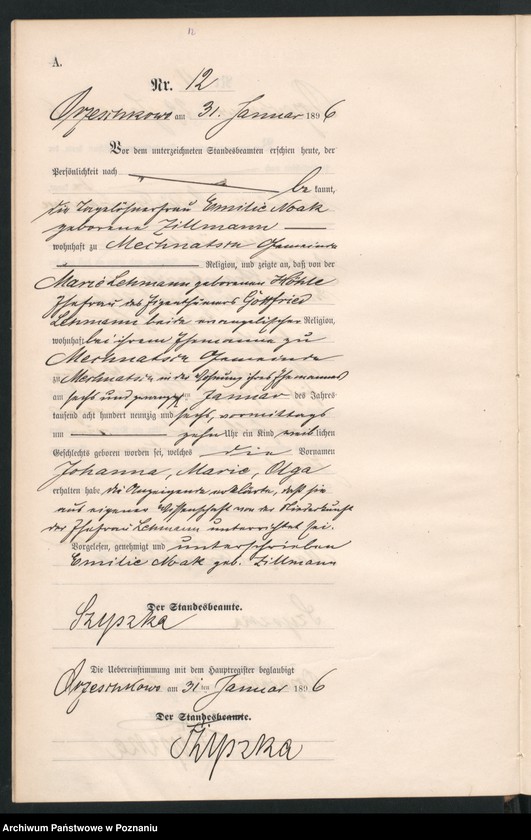 A.
Nr. 12
Orzeschkowo am 31. Januar 1896
Vor dem unterzeichneten Standesbeamten erschien heute, der
Persönlichkeit nach be kannt,
die Tagelöhnerfrau Emilie Noak
geborene Zillmann
wohnhaft zu Mechnatsch Gemeinde
Religion, und zeigte an, daß von der
Marie Lehmann geborenen Höhle
Ehefrau des Eigenthümers Gottfried
Lehmann beide evangelischer Religion,
wohnhaft bei ihrem Ehemanne zu
Mechnatsch Gemeinde
zu Mechnatsch in der Wohnung ihres Ehemannes
am sechs und zwanzig ten Januar des Jahres
tausend acht hundert neunzig und sechs, vormittags
um zehn Uhr ein Kind weiblichen
Geschlechts geboren worden sei, welches die Vornamen
Johanna, Marie, Olga
erhalten habe die Anzeigende erklärte, daß sie
aus eigener Wissenschaft von der Niederkunft
der Ehefrau Lehmann unterrichtet sei.
Vorgelesen, genehmigt und unterschrieben
Emilie Noak geb. Zillmann
Der Standesbeamte.
Szyszka
Die Uebereinstimmung mit dem Hauptregister beglaubigt
Orzeschkowo am 31 ten Januar 1896
Der Standesbeamte.
Szyszka
Archiwum Państwowe w Poznaniu